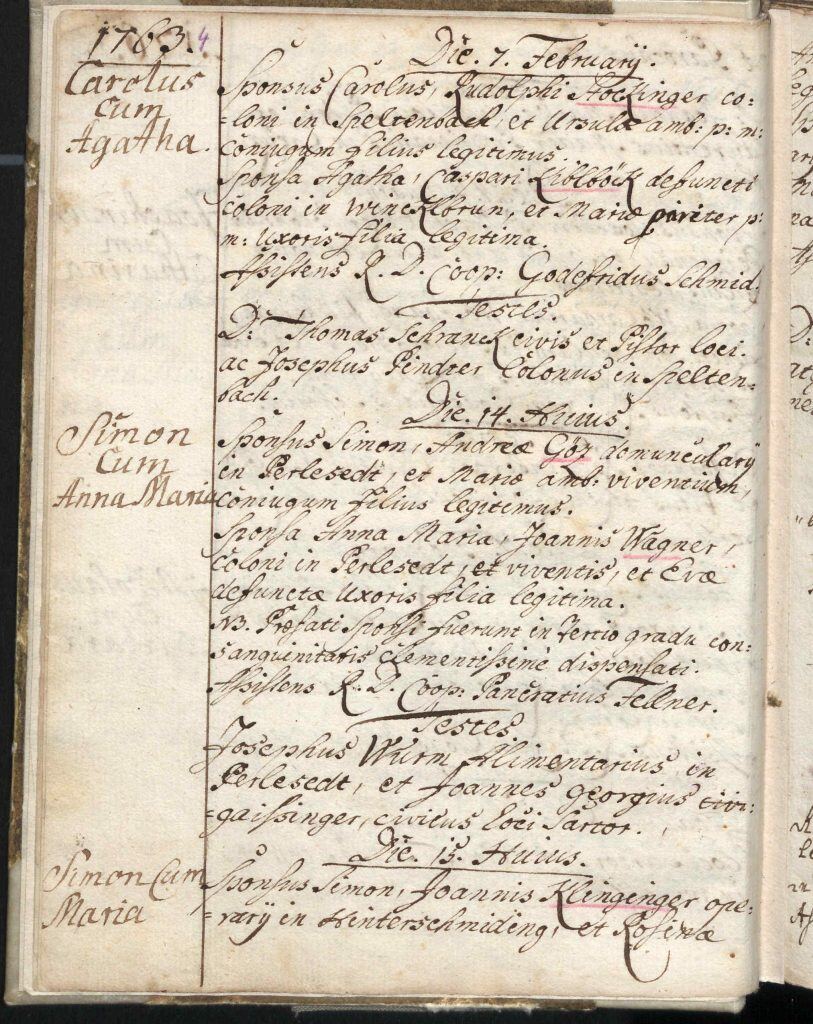 1763. 4
Carolus
cum
Agatha.
Die. 7. Februarÿ.
Sponsus Carolus, Rudolphi Stockinger co:
=loni in Speltenbach et Ursulæ amb: p: m:
Coniugum filius legitimus.
Sponsa Agatha, Caspari Kiblböck defuncti
coloni in Wincklbrun, et Mariæ pariter p:
m: Uxoris filia legitima.
Assistens R. D. Coop: Godefridus Schmid.
Testes.
D: Thomas Schranck civis et Pistor loci.
ac Josephus Pindter Colonus in Spelten=
bach.
Simon
Cum
Anna Maria
Die. 14. Huius.
Sponsus Simon, Andreæ Göz domuncularÿ
in Perlesedt, et Mariæ amb: viventium,
Coniugum filius legitimus.
Sponsa Anna Maria, Joannis Wagner,
Coloni in Perlesedt, et viventis, et Evæ
defunctæ Uxoris filia legitima.
NB. Præfati Sponsi fuerunt in tertio gradu con:
sanguinitatis clementissimè dispensati.
Assistens R. D. Coop: Pancratius Fellner.
Testes.
Josephus Wurm Alimentarius in
Perlesedt, et Joannes Georgius
=gaissinger, civicus loci Sartor.
Simon Cum
Maria
Die. 15. Huius.
Sponsus Simon, Joannis Klinginger ope:
=rarÿ in Hinterschmiding, et Rosinæ